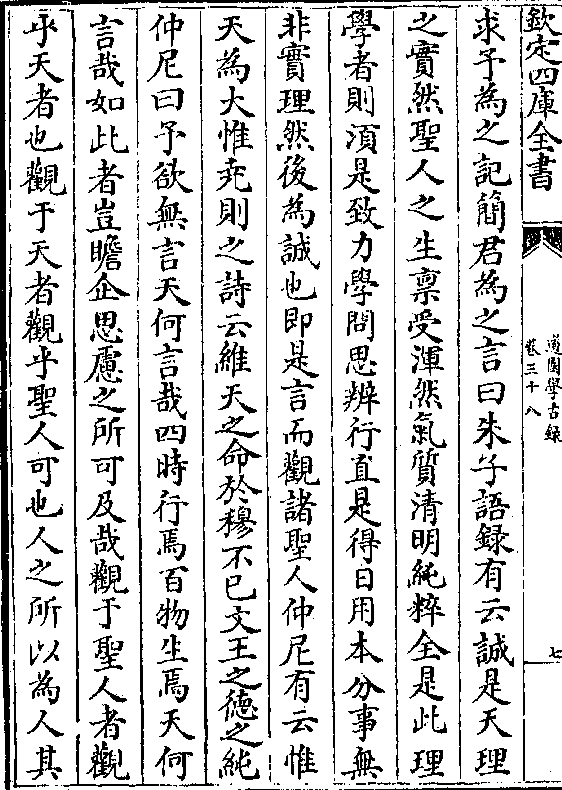 欽定四庫全書
道園學古録
卷三十八
七
求予為之記簡君為之言曰朱子語録有云誠是天理
之實然聖人之生禀受渾然氣質清明純粹全是此理
學者則須是致力學問思辨行直是得日用本分事無
非實理然後為誠也即是言而觀諸聖人仲尼有云惟
天為大惟堯則之詩云維天之命於穆不已文王之德之純
仲尼曰予欲無言天何言哉四時行焉百物生焉天何
言哉如此者豈瞻企思慮之所可及哉觀于聖人者觀
乎天者也觀于天者觀乎聖人可也人之所以為人其